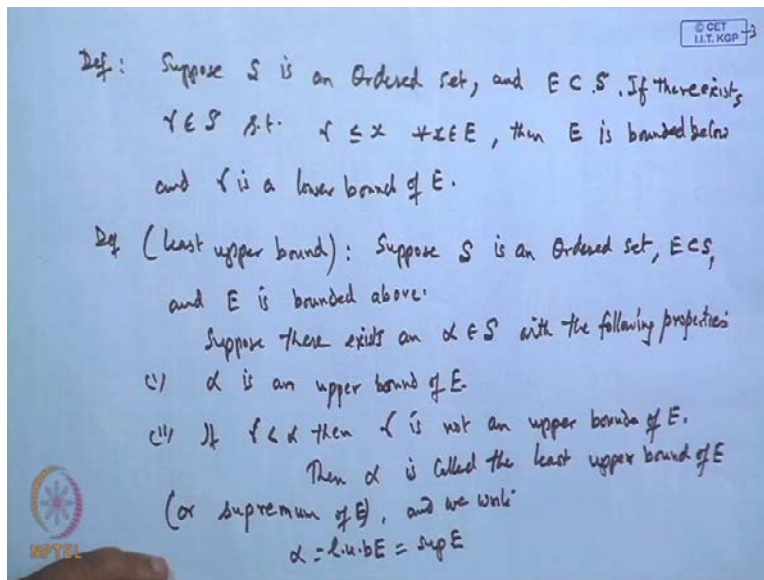 © CET
I.I.T. KGP
-3
Def: Suppose S is an Ordered set, and E ⊂ S. If there exists
γ ∈ S s.t. γ ≤ x ∀ x ∈ E, then E is bounded below
and γ is a lower bound of E.
Def (least upper bound): Suppose S is an Ordered set, E ⊂ S,
and E is bounded above.
Suppose there exists an α ∈ S with the following properties
(i) α is an upper bound of E.
(ii) If γ < α then γ is not an upper bound of E.
Then α is called the least upper bound of E
(or supremum of E), and we write
α = l.u.b E = sup E
NPTEL